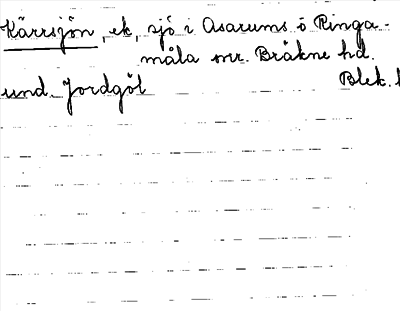 Kärrsjön, ek, sjö i Asarums o Ringa-
måla snr. Bräkne hd.
und. Jordgöl Blek. l